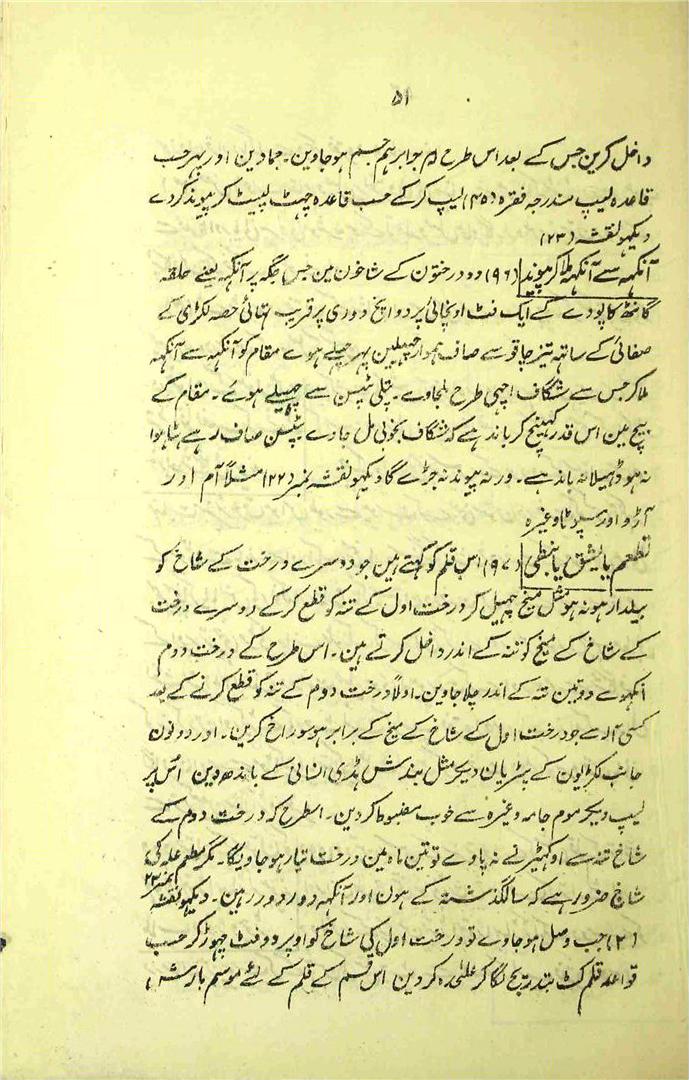 ۵۱
داخل کرین جس کے بعد اس طرح (م) برابر ہم جسم ہو جاوین۔ جمادین اور پھر حسب
قاعدہ لیپ مندرجہ فقرہ (۴۵) لیپ کرکے حسب قاعدہ چہٹ لپیٹ کر پیوند کردے
دیکھو نقشہ (۲۳)
آنکہہ سے آنکہہ ملا کر پیوند (۹۶) دو درختون کے شاخون مین جس جگہ پر آنکہہ یعنے حلقہ
گانٹھ کا پودے کے ایک فٹ اونچائی پر دو انچ دوری پر قریب تہائی حصہ لکڑی کے
صفائی کے ساتہہ تیز چاقو سے صاف ہموار چہیلین پہر چہیلے ہوے مقام کو آنکہہ سے آنکہہ
ملا کر جس سے شگاف اچہی طرح ملجاوے۔ پتلی ٹپسن سے چہیلے ہوئے۔ مقام کے
بیچ مین اس قدر کہینچ کر باندہے کہ شگاف بخوبی مل جاوے ٹپسن صاف رہے ہٹا ہوا
نہ ہو ڈہیلا نہ باندہے۔ ورنہ پیوند نہ جڑے گا دیکھو نقشہ نمبر (۲۲) مثلاً آم اور
آڑو اور سپوٹا وغیرہ
تطعم یا لیشق یا بنطی (۹۷) اس قلم کو کہتے ہین جو دوسرے درخت کے شاخ کو
بیلدار ہو نہ ہو مثل میخ چہیل کر درخت اول کے تنہ کو قطع کرکے دوسرے درخت
کے شاخ کے میخ کو تنہ کے اندر داخل کرتے ہین۔ اس طرح کے درخت دوم
انکہوے دو تین تنہ کے اندر چلا جاوین۔ اولاً درخت دوم کے تنہ کو قطع کرنے کے بعد
کسی آلہ سے جو درخت اول کے شاخ کے میخ کے برابر ہو سوراخ کرین۔ اور دونون
جانب لکڑایون کے پٹریان دیکر مثل بندش ہڈی انسانی کے باندھ دین اس پر
لیپ دیکر موم جامہ وغیرہ سے خوب مضبوط کردین۔ اسطرح کہ درخت دوم کے
شاخ تنہ سے اوکہیٹرنے نہ پاوے تو تین ماہ مین درخت تیار ہو جاویگا۔ مگر
شاخ ضرور ہے کہ سالگذشتہ کے ہون اور آنکہہ دور دور رہین۔ دیکہو نقشہ نمبر ۲۳
(۲) جب وصل ہو جاوے تو درخت اول کی شاخ کو اوپر دو فٹ چہوڑ کر حسب
قواعد قلم کٹ بتدریج لگا کر علٰحدہ کردین اس قسم کے قلم کے لئے موسم بارش